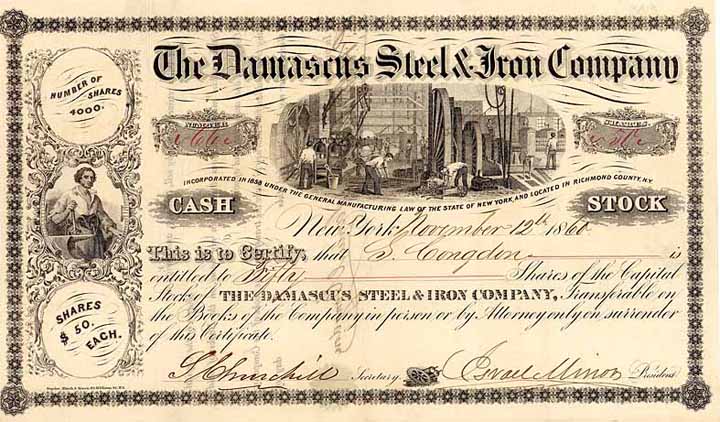 NUMBER OF
SHARES
4000.
The Damascus Steel & Iron Company
NUMBER
SHARES.
INCORPORATED IN 1858 UNDER THE GENERAL MANUFACTURING LAW OF THE STATE OF NEW YORK, AND LOCATED IN RICHMOND COUNTY, N.Y.
CASH
STOCK
New-York November 12th 1860
This is to Certify, that S. Congdon is
entitled to Fifty Shares of the Capital
Stock of THE DAMASCUS STEEL & IRON COMPANY, Transferable on
the Books of the Company in person or by Attorney only on surrender
of this Certificate.
SHARES
$ 50.
EACH.
S Churchill Secretary Israel Minor President